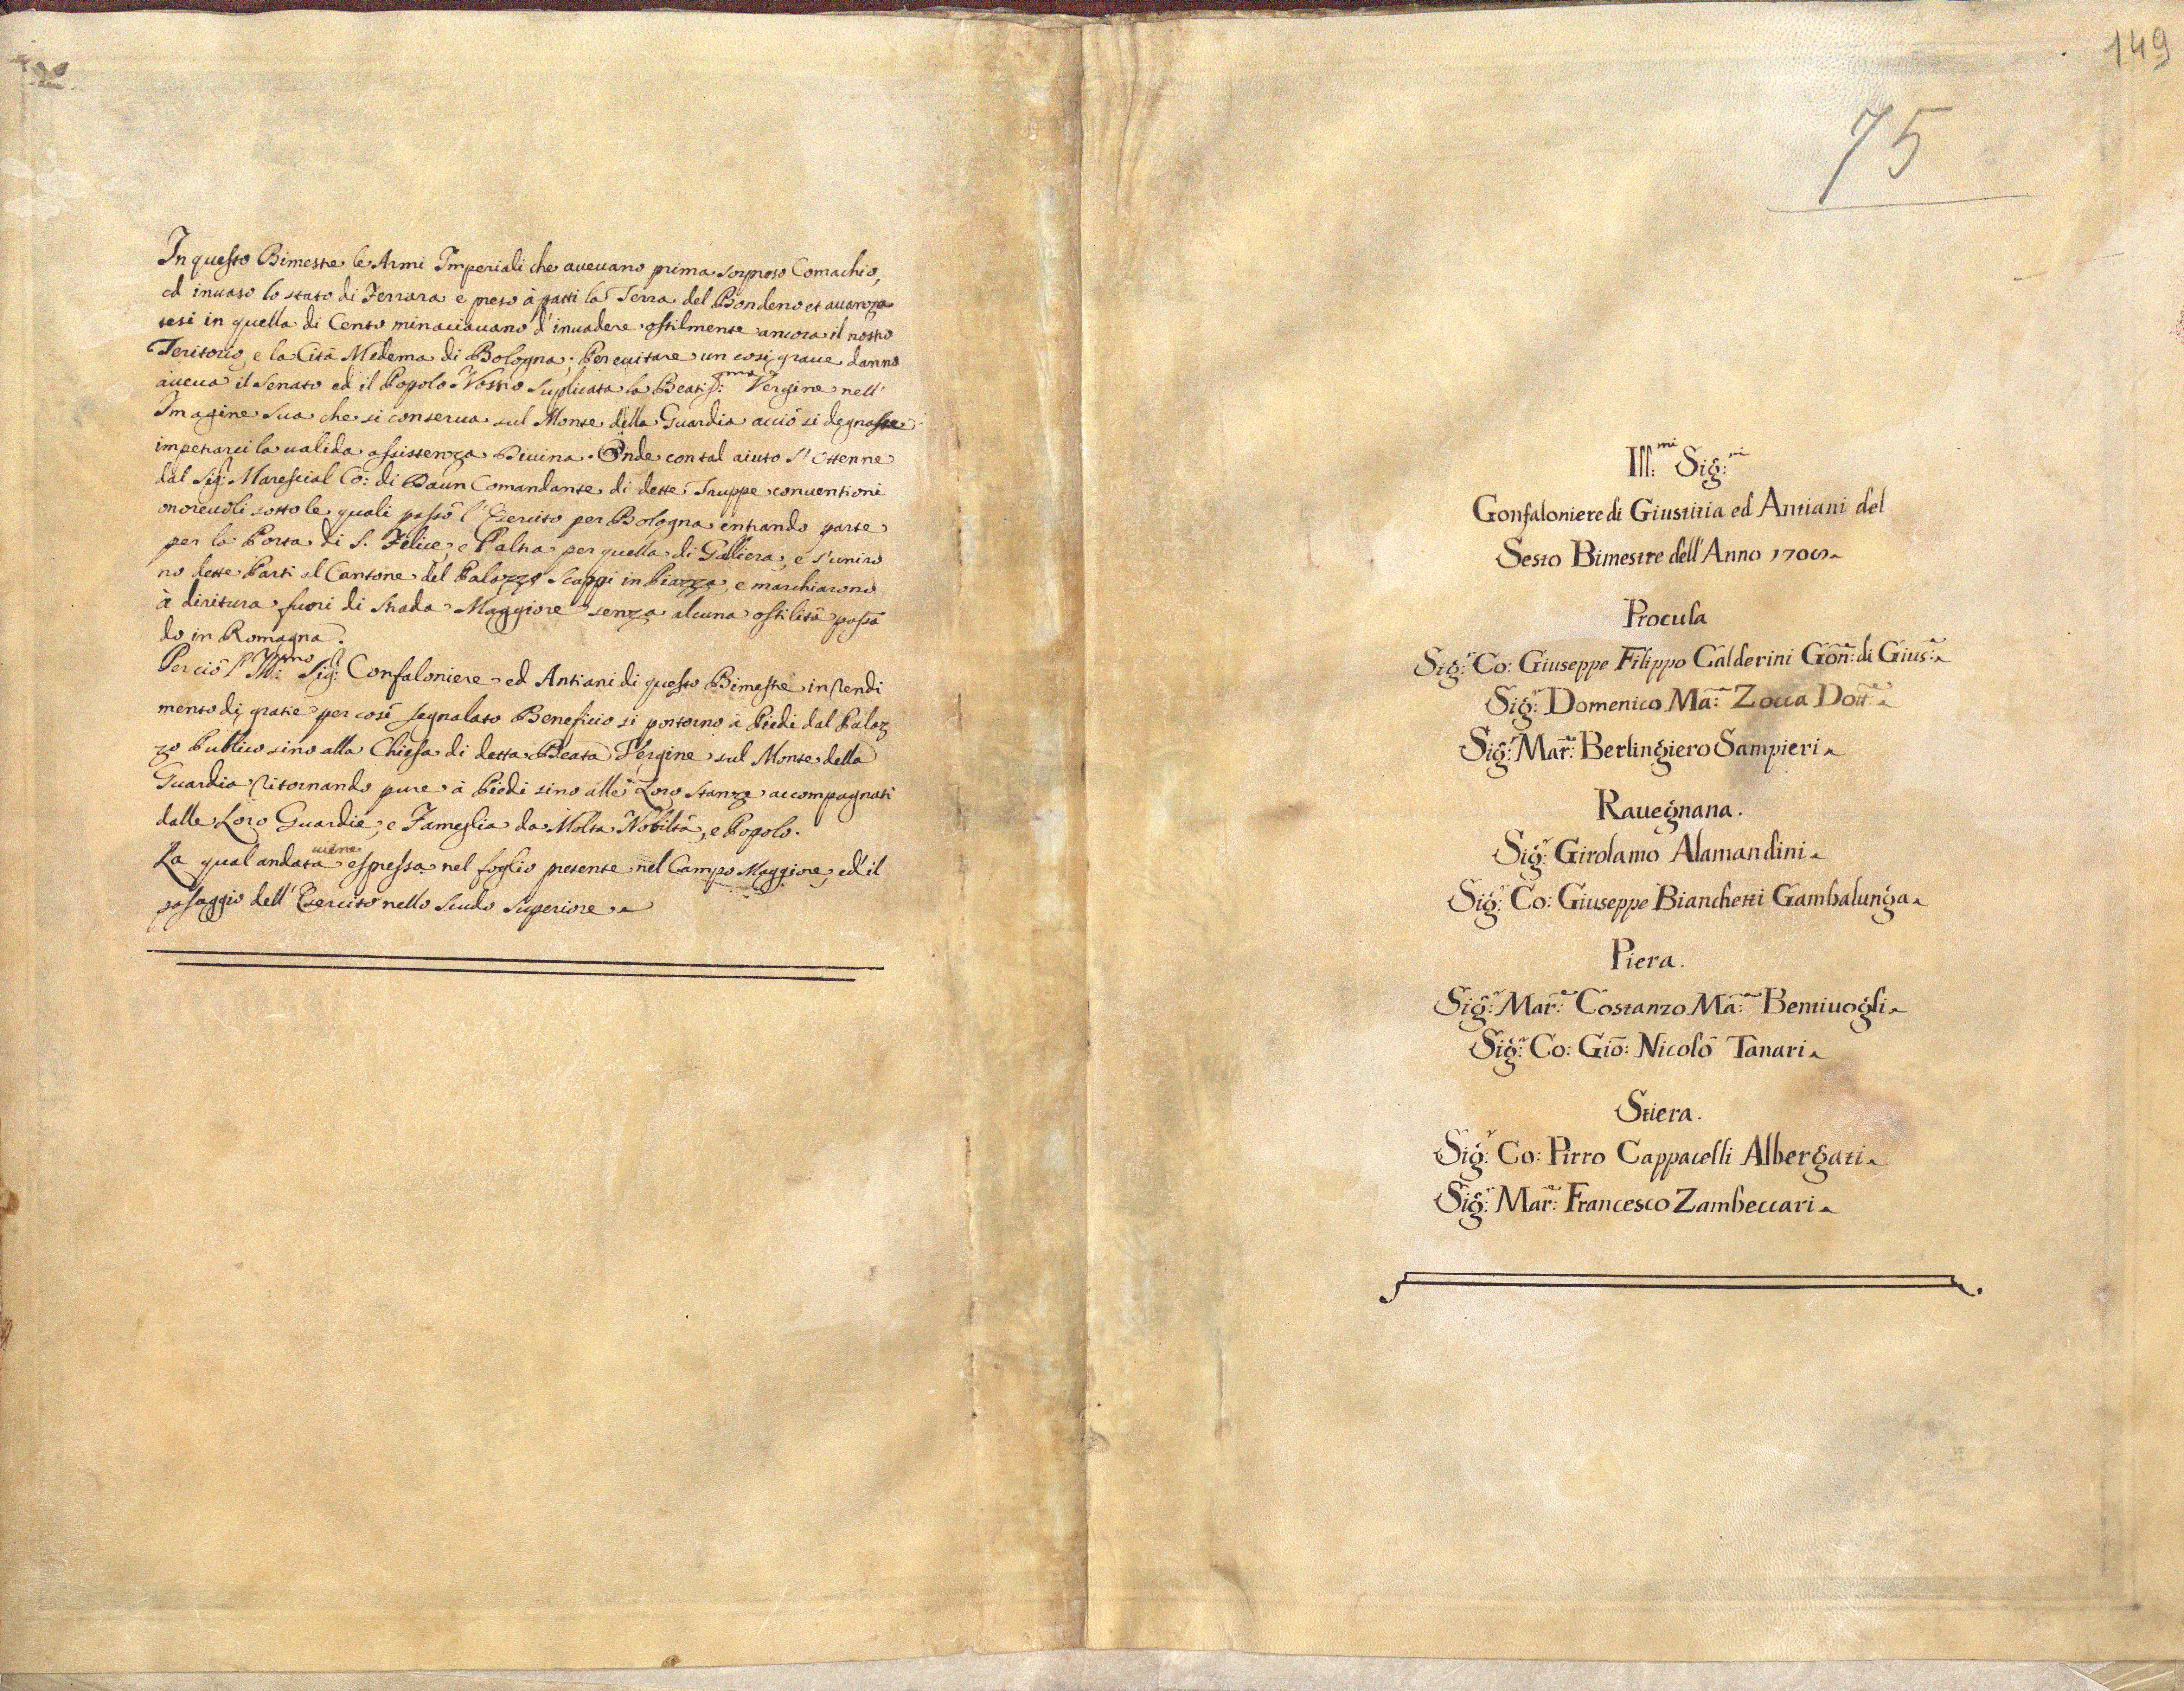 In questo Bimestre le Armi Imperiali che aueuano prima sorpreso Comachio,
ed inuaso lo stato di Ferrara e preso à patti la Terra del Bondeno et auanza
tesi in quella di Cento minaciauano d'inuadere ostilmente ancora il nostro
Teritorio, e la Cità Medema di Bologna; Per euitare un cosi graue danno
aueua il Senato ed il Popolo Nostro Suplicata la Beatiss:ma Vergine nell'
Imagine Sua che si conserua sul Monte della Guardia acciò si degnasse
impetrarci la ualida assistenza Diuina. Onde con tal aiuto s'ottenne
dal Sig:r Marescial Co: di Daun Comandante di dette Truppe conuentioni
onoreuoli sotto le quali passò l'Esercito per Bologna entrando parte
per la Porta di S. Felice, e l'altra per quella di Galliera, e s'uniro
no dette Parti al Cantone del Palazzo Scappi in Piazza, e marchiarono
à diritura fuori di strada Maggiore senza alcuna ostilità passā
do in Romagna.
Perciò l'Ill:mo Sig:r Confaloniere ed Antiani di questo Bimestre in rendi
mento di gratie per così segnalato Beneficio si portorno à Piedi dal Palaz
zo Publico sino alla Chiesa di detta Beata Vergine sul Monte della
Guardia ritornando pure à Piedi sino alle Loro Stanze accompagnati
dalle Loro Guardie, e Fameglia da Molta Nobiltà, e Popolo.
La qual andata uiene espressa nel foglio presente nel Campo Maggiore, ed il
passaggio dell'Esercito nello Scudo Superiore
149
75
Ill:mi Sig:ri
Gonfaloniere di Giustitia ed Antiani del
Sesto Bimestre dell'Anno
Procula
Sig:r Co: Giuseppe Filippo Calderini Gōn:e di Gius:a
Sig:r Domenico Mā:a Zocca Dott:e
Sig:r Mar:e Berlingiero Sampieri
Rauegnana.
Sig:r Girolamo Alamandini
Sig:r Co: Giuseppe Bianchetti Gambalunga
Piera.
Sig:r Mar:e Costanzo Mā:a Bentiuogli
Sig:r Co: Giō: Nicolò Tanari
Stiera.
Sig:r Co: Pirro Cappacelli Albergati
Sig:r Mar:e Francesco Zambeccari